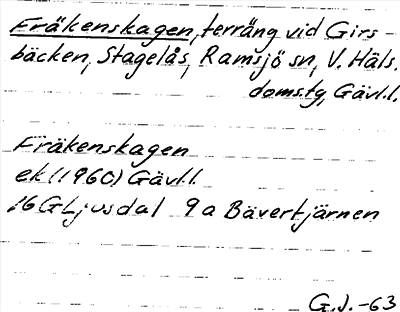 Fräkenskagen, terräng vid Girs-
bäcken, Stagelås, Ramsjö sn, V. Häls.
domstg, Gävl.l.
Fräkenskagen
ek (1960) Gävl.l
16G Ljusdal 9a Bävertjärnen
G.J. -63